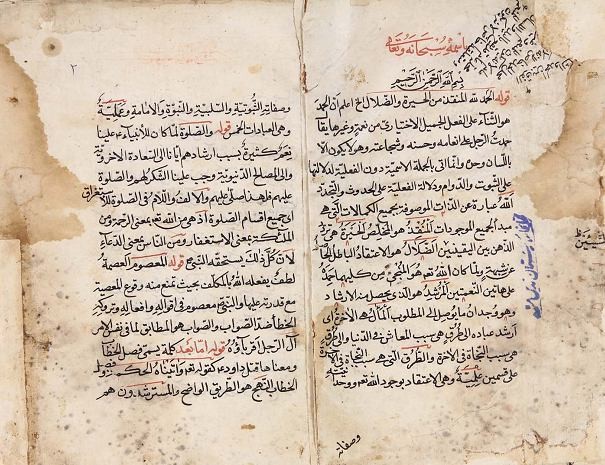 باسمه سبحانه وتعالى
بسم الله الرحمن الرحيم
قوله الحمد لله المنقذ من الحيرة والضلال الخ اعلم ان الحمد
هو الثناء على الفعل الجميل الاختياري من نعمة وغيرها يقال
حمدت الرجل على انعامه وحسنه وشجاعته وهو لا يكون الا
باللسان وحده وانما اتى بالجملة الاسمية دون الفعلية لدلالتها
على الثبوت والدوام ودلالة الفعلية على الحدوث والتجدد
الله عبارة عن الذات الموصوفة بجميع الكمالات التي هي
مبدأ لجميع الموجودات المنقذ هو المخلص الحيرة هي تردد
الذهن بين اليقينين الضلال هو الاعتقاد الباطل الخا
عن شبهة ولما كان الله تعم هو المنجي من كليهما حمده
على هاتين النعمتين المرشد هو الذي يحصل منه الارشاد
وهو وجدان ما يوصل الى المطلوب المسالك هو الآخرة اي
ارشد عباده الى طرق هي سبب المعاش في الدنيا والى طرق
هي سبب النجاة في الآخرة والطرق التي هي سبب النجاة في الآخرة
على قسمين علمية وهي الاعتقاد بوجود الله تعم ووحدانيته
وصفاته
٢
وصفاته الثبوتية والسلبية والنبوة والامامة وعملية
وهو العبادات الخمس قوله والصلوة لما كان للانبياء علينا
نعم كثيرة بسبب ارشادهم ايانا الى السعادة الاخروية
والى المصالح الدنيوية وجب علينا الشكر لهم والصلوة
عليهم فلهذا صلى عليهم والالف واللام في الصلوة للاستغراق
اي جميع اقسام الصلوة اذ هو من الله تعم بمعنى الرحمة ومن
الملائكة بمعنى الاستغفار ومن الناس بمعنى الدعاء
لان كل ذلك يستحقه النبي ص قوله المعصوم العصمة
لطف يفعله الله بالمكلف بحيث تمنع منه وقوع المعصية
مع قدرته عليها والنبي ص معصوم في اقواله وافعاله وتروكه
الخطأ ضد الصواب والصواب هو المطابق لما في نفس الامر
آل الرجل اقرباؤه قوله اما بعد كلمة يسمى فصل الخطاب
ومعناها قبل داود ع كقوله تعم واتيناه الحكمة وفصل
الخطاب المنهج هو الطريق الواضح والمسترشدون هم